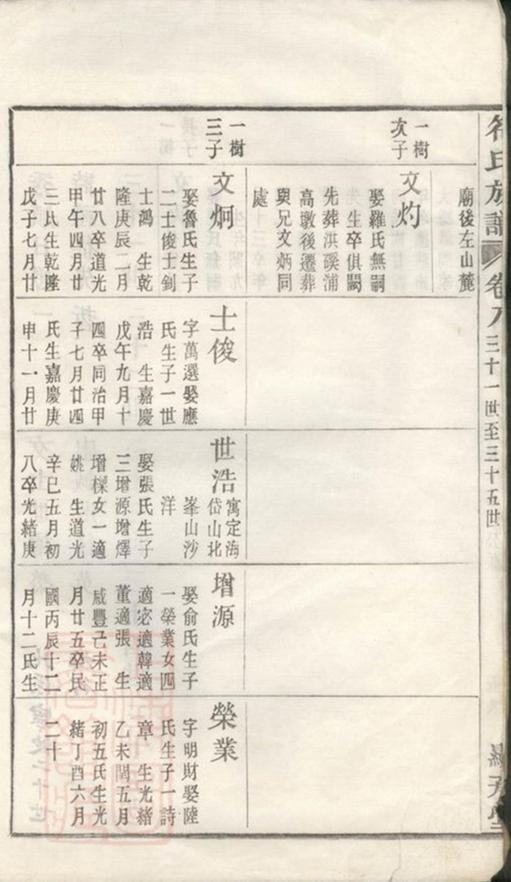 氏族譜
卷
三十一世至三十五世
廟後左山麓
一樹
次子
文灼
娶羅氏無嗣
先生卒俱闕
先葬洪溪浦
高墩後遷葬
與兄文炳同
處
一樹
三子
文炯
娶魯氏生子
二士俊士釗
士鴻 生乾
隆庚辰二月
廿八卒道光
甲午四月廿
三氏生乾隆
戊子七月廿
士俊
字萬選娶應
氏生子一世
浩 生嘉慶
戊午九月十
四卒同治甲
子七月廿四
氏生嘉慶庚
申十一月廿
世浩
寓定海
岱山北
峯山沙
洋
娶張氏生子
三增源增燡
增樑女一適
姚 生道光
辛巳五月初
八卒光緒庚
增源
娶俞氏生子
一榮業女四
適宓適韓適
董適張 生
咸豐己未正
月廿五卒民
國丙辰十二
月十二氏生
榮業
字明財娶陸
氏生子一詩
章 生光緒
乙未閏五月
初五氏生光
緒丁酉六月
二十